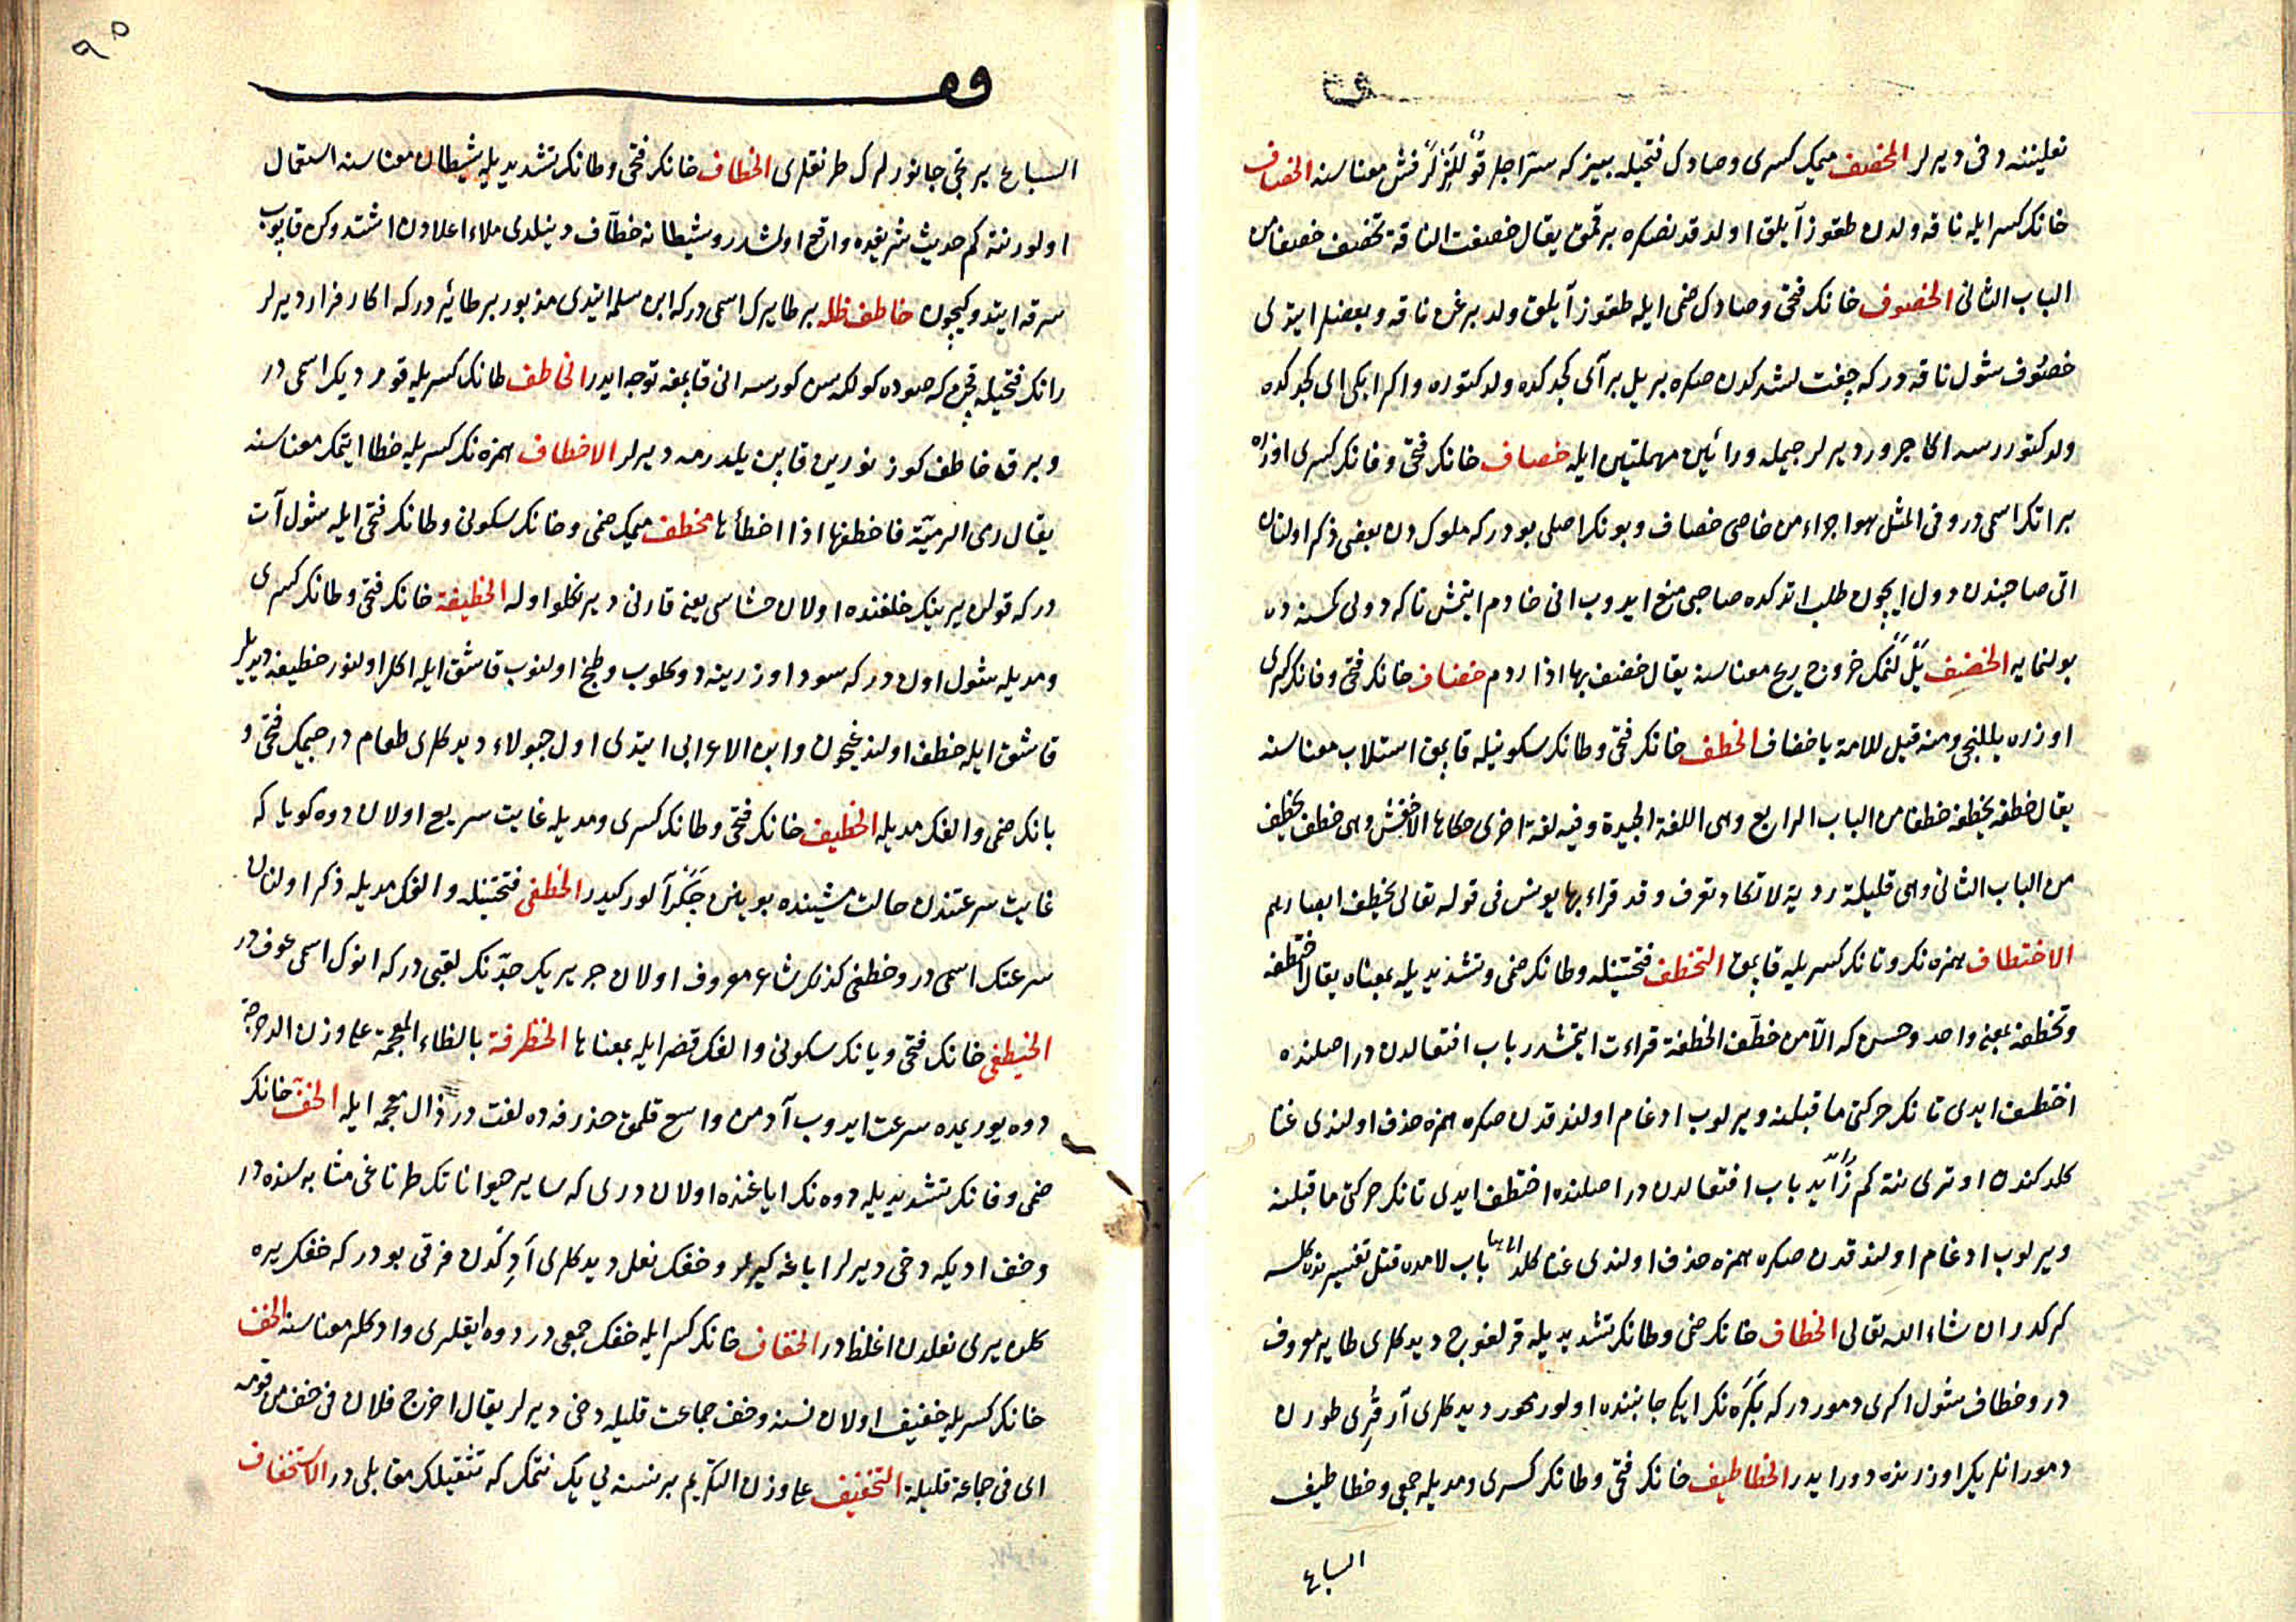 نعلیننه دخی دیرلر المخصف میمك كسری و صادك فتحیله بیز كه سرّاجلر معناسنه الخصاف
خانك كسر ایله ناقه ولدن طقوز آیلق اولدقدنصكره برقمق یقال خصفت الناقة تخصف خصفا من
الباب الثانی الخصوف خانك فتحی و صادك ضمی ایله طقوز آیلق ولد برغن ناقه و بعضلر ایتدی
خصوف شول ناقه در كه چفت لشدكدن صكره بریل برآی كجدكده ولد كتوره و اكر ایكی ای كجدكده
ولد كتوررسه اكا جرور دیرلر جیمله و رائین مهملتین ایله خصاف خانك فتحی و فانك كسری اوزره
براتك اسمی در و فی المثل هو اجراء من خاصی خصاف و بونك اصلی بودر كه ملوكدن بعضی ذكر اولنان
اتی صاحبندن دول ایچون طلب اتدكده صاحبی منع ایدوب انی خادم ایتمش تا كه دولی كمسنه ده
بولنمایه الخضف خروج ریح معناسنه یقال خضف بها اذا ردم خضاف خانك فتحی و فانك كسری
اوزره یللنجی و منه قیل للامة یا خضاف الخطف خانك فتحی و طانك سكونیله قاپمق استلاب معناسنه
یقال خطفه یخطفه خطفا من الباب الرابع وهی اللغة الجیدة و فیه لغة اخری حكاها الاخفش وهی خطف یخطف
من الباب الثانی وهی قلیلة ردیة لا تكاد تعرف و قد قراء بها یونس فی قوله تعالی یخطف ابصارهم
الاختطاف همزه نك و تانك كسریله قاپمق التخطف فتحتینله و طانك ضمی و تشدیدیله بمعناه یقال اختطفه
و تخطفه بمعنی واحد و حسن كه الا من خطّف الخطفة قراءت ایتمشدر باب افتعالدن در اصلنده
اختطف ایدی تانك حركتی ماقبلنه ویرلوب ادغام اولندقدن صكره همزه حذف اولندی غنا
كلدكندن اوتری نته كم زائد باب افتعالدن در اصلنده اختطف ایدی تانك حركتی ماقبلنه
ویرلوب ادغام اولندقدن صكره همزه حذف اولندی غنا كلد باب لامده قتل تفسیرنده كلسه
كركدر ان شاء الله تعالی الخطاف خانك ضمی و طانك تشدیدیله قرلغوج دیدكلری طایر معروف
در و خطاف شول اكری دمور در كه بكره نك ایكی جانبنده اولور محور دیدكلری آرقری طورن
دمور انلریك اوزرنده دورایدر الخطاطیف خانك فتحی و طانك كسری و مدیله جمعی و خطاطیف
السباع
٩٥
السباع یرتجی جانورلرك طرنقلری الخطاف خانك فتحی و طانك تشدیدیله شیطان معناسنه استعمال
اولور نته كم حدیث شریفده واقع اولمشدر و شیطانه خطّاف دینلدی ملاء اعلادن اشتدوكن قاپوب
سرقه ایتدوكیچون خاطف ظله بر طایرك اسمی دركه ابن سلمه ایتدی مذبور بر طائردر كه اكا رفراف دیرلر
رانك فتحیله قچن كه صوده كولكه سن كورسه انی قاپمغه توجه ایدر الخاطف طانك كسریله قورد دیك اسمی در
و برق خاطف كوز نورین قاپن یلدرمه دیرلر الاخطاف همزه نك كسریله خطا ایتمك معناسنه
یقال رمی الرمیّة فاخطفها اذا اخطأها مخطف میمك ضمی و خانك سكونی و طانك فتحی ایله شول آت
دركه قولن یرینك خلفنده اولان حشاسی یعنی قارنی دیرنكلو اوله الخطیفة خانك فتحی و طانك كسری
و مدیله شول اون در كه سود اوزرینه دوكلوب و طبخ اولنوب قاشق ایله اكل اولنور خطیفه دیدیلر
قاشق ایله خطف اولندیغیچون و ابن الاعرابی ایتدی اول جبولاء دیدكلری طعام در جیمك فتحی و
بانك ضمی و الفك مدیله الخطیف خانك فتحی و طانك كسری و مدیله غایت سریع اولان دوه كویا كه
غایت سرعتندن حالت مشینده بوینن چكرآلور كیدر الخطفی فتحتینله و الفك مدیله ذكر اولنان
سرعتك اسمی در و خطفی كذلك شاعر معروف اولان جریریك جدّنك لقبی در كه انوك اسمی عوف در
الخیطفی خانك فتحی و یانك سكونی و الفك قصر ایله بمعناها الخظرفة بالظاء المعجمة علی وزن الدحرجة
دوه یوریمده سرعت ایدوب آدمن واسع قلمق حذرفه ده لغت در ذال معجمه ایله الخفّ خانك
ضمی و فانك تشدیدیله دوه نك ایاغنده اولان دری كه سایر حیواناتك طرناغی مثابه سنده در
و خف ادیكه دخی دیرلر ایاغه كیرلر و خفك نعل دیدكلری آدكدن فرقی بودر كه خفك یره
كلن یری نعلدن اغلظ در الخفاف خانك كسر ایله خفك جمعی در دوه ایقلری و ادكلر معناسنه الخف
خانك كسریله خفیف اولان نسنه و خف جماعت قلیله دخی دیرلر یقال اخرج فلان فی خف من قومه
ای فی جماعة قلیلة التخفیف علی وزن التكریم بر نسنه یی یكنتمك كه تثقیلك مقابلی در الاستخفاف